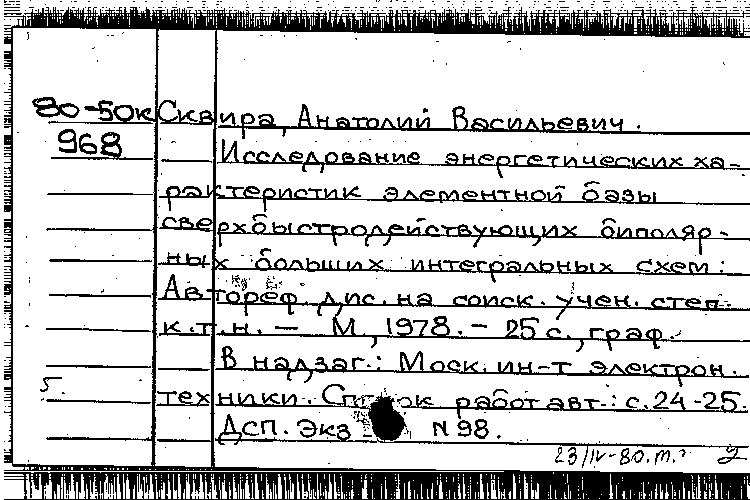 80-50к Сквира, Анатолий Васильевич.
968 Исследование энергетических ха-
рактеристик элементной базы
сверхбыстродействующих биполяр-
ных больших интегральных схем:
Автореф. дис. на соиск. учен. степ.
к.т.н. — М., 1978. - 25 с., граф.
В надзаг.: Моск. ин-т электрон.
5. техники. Список работ авт.: с. 24-25.
Дсп. Экз N 98.
23/IV-80. т.